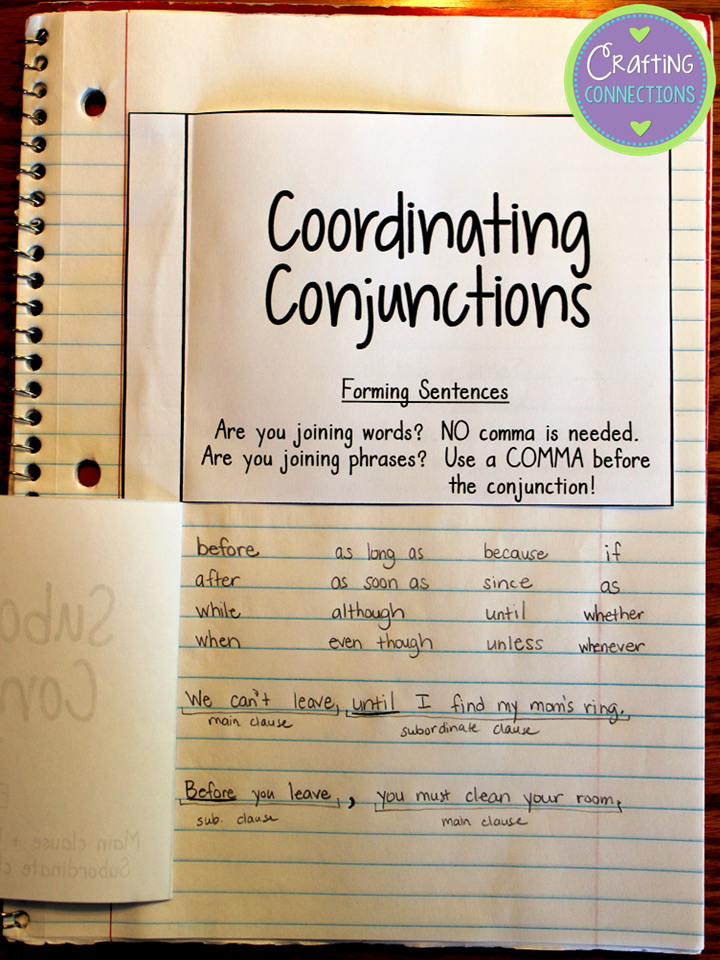 Crafting
CONNECTIONS
Coordinating
Conjunctions
Forming Sentences
Are you joining words? NO comma is needed.
Are you joining phrases? Use a COMMA before
the conjunction!
before as long as because if
after as soon as since as
while although until whether
when even though unless whenever
We can't leave until I find my mom's ring.
main clause subordinate clause
Before you leave, you must clean your room.
sub. clause main clause
Subo
Con
Main clause +
Subordinate cl